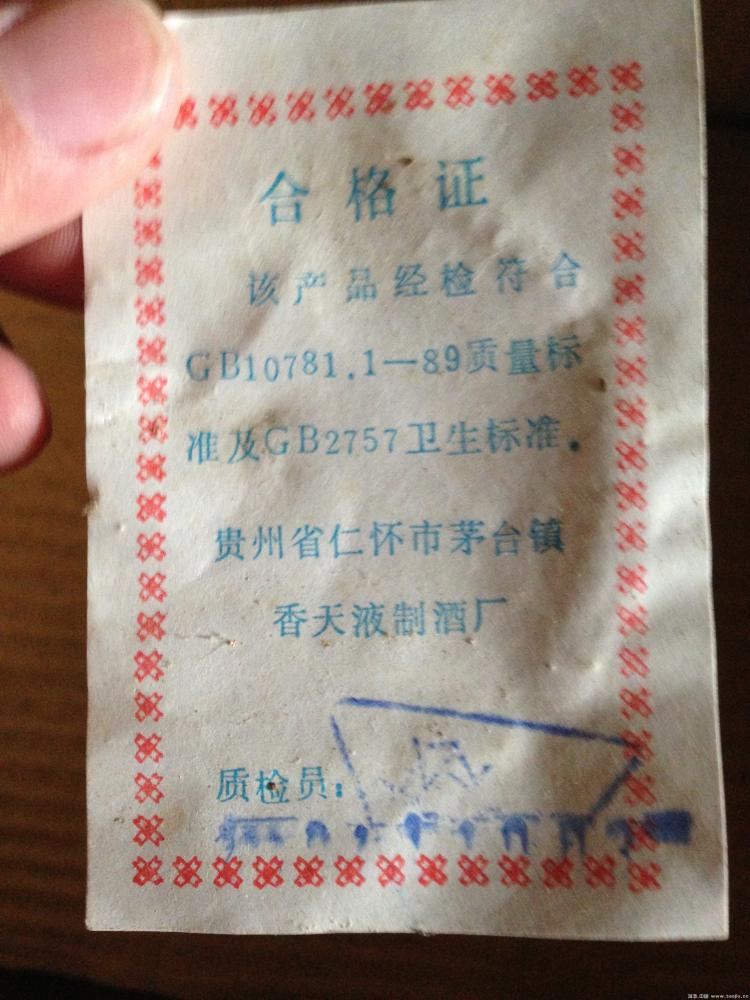 合格证
该产品经检符合
GB10781.1—89质量标
准及GB2757卫生标准.
贵州省仁怀市茅台镇
香天液制酒厂
质检员: